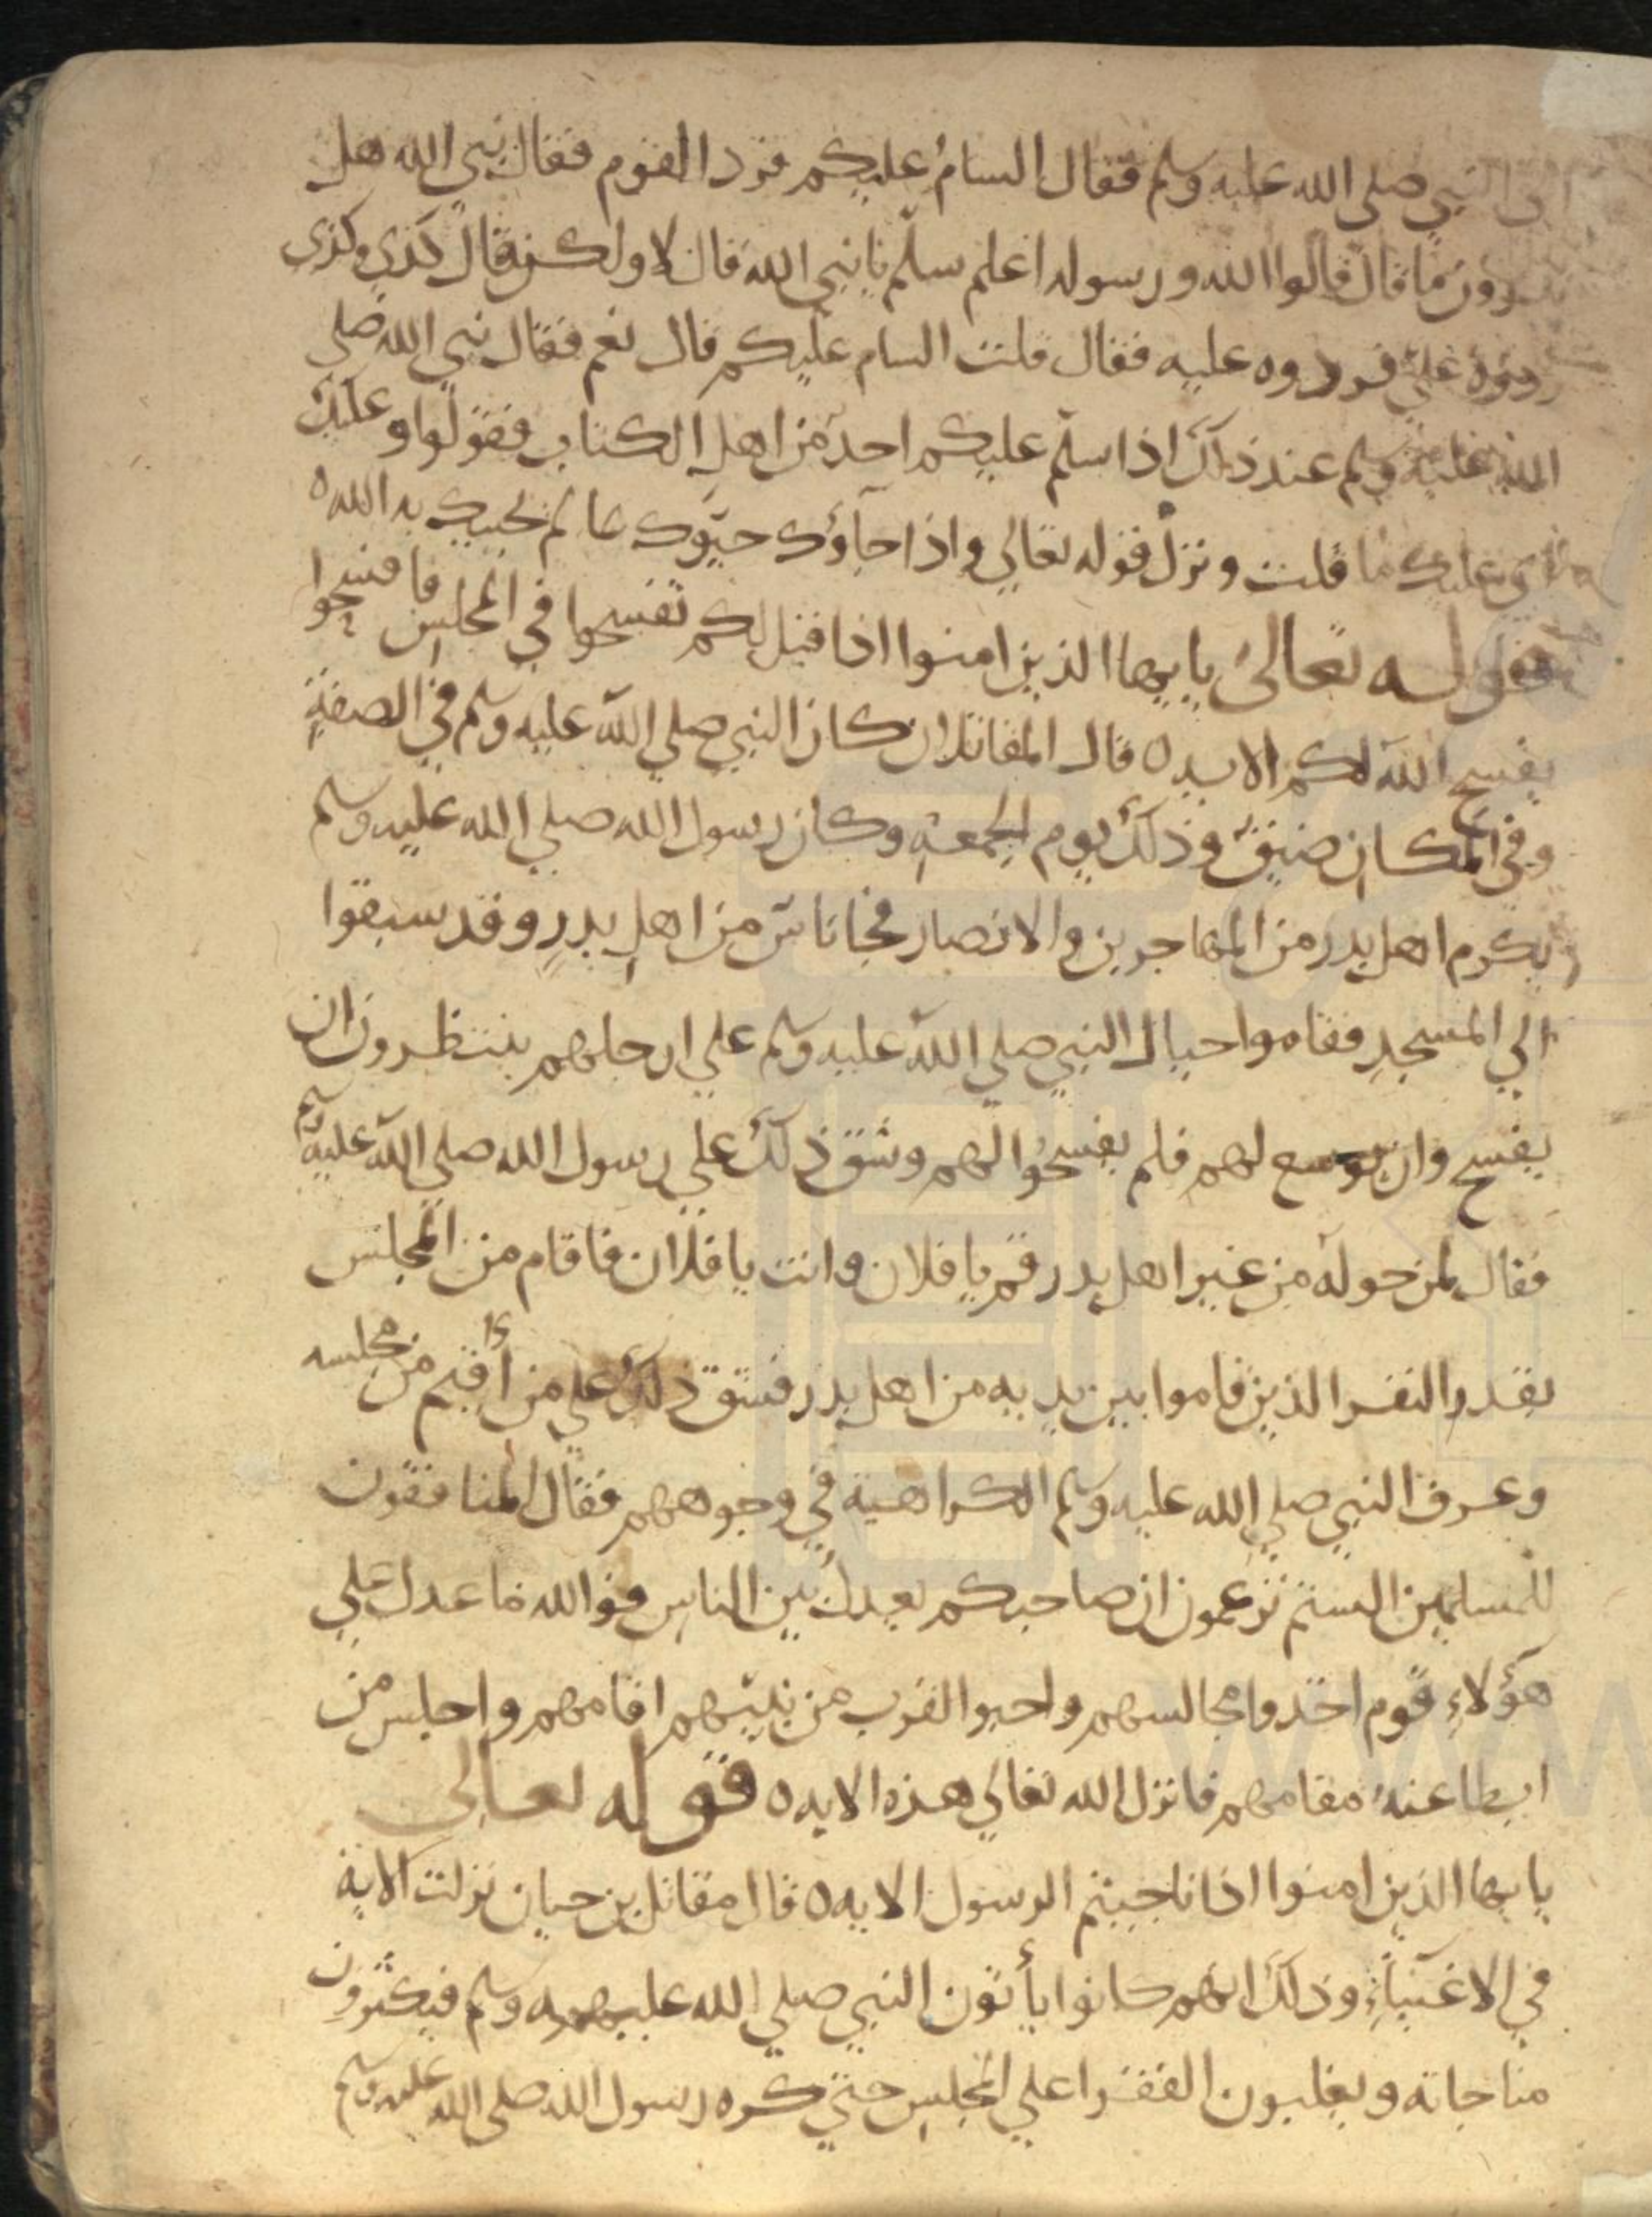 اتى النبي صلى الله عليه وسلم فقال السام عليكم فرد القوم فقال نبي الله هل
تدرون ما قال قالوا الله ورسوله اعلم سلّم يا نبي الله قال لا ولكنه قال كذى وكذى
ردوه عليّ فردوه عليه فقال قلت السام عليكم قال نعم فقال نبي الله صلى
الله عليه وسلم عند ذلك اذا سلّم عليكم احد من اهل الكتاب فقولوا وعليك
اى عليك ما قلت ونزل قوله تعالى واذا جاؤك حيّوك بما لم يحيك به الله ه
قوله تعالى يا ايها الذين امنوا اذا قيل لكم تفسحوا في المجلس فافسحوا
يفسح الله لكم الايه ه قال المقاتلان كان النبي صلى الله عليه وسلم في الصفة
وفي المكان ضيق وذلك يوم الجمعة وكان رسول الله صلى الله عليه وسلم
يكرم اهل بدر من المهاجرين والانصار فجا ناس من اهل بدرٍ وقد سبقوا
الى المسجد فقاموا حيال النبي صلى الله عليه وسلم على ارجلهم ينتظرون ان
يفسح وان يوسع لهم فلم يفسحوا لهم وشق ذلك على رسول الله صلى الله عليه وسلم
فقال لمن حوله من غير اهل بدر قم يا فلان وانت يا فلان فاقام من المجلس
بقدر النفر الذين قاموا بين يديه من اهل بدر فشق ذلك على من أقيم من مجلسه
وعرف النبي صلى الله عليه وسلم الكراهية في وجوههم فقال المنافقون
للمسلمين الستم تزعمون ان صاحبكم يعدل بين الناس فوالله ما عدل على
هؤلاءِ قوم اخذوا مجالسهم واحبوا القرب من نبيّهم اقامهم واجلس من
ابطا عنه مقامهم فانزل الله تعالى هذه الايه ه قوله تعالى
يا ايها الذين امنوا اذا ناجيتم الرسول الايه ه قال مقاتل بن حيان نزلت الاية
في الاغنياءِ وذلك انهم كانوا يأتون النبي صلى الله عليه وسلم فيكثرون
مناجاته ويغلبون الفقرا على المجلس حتى كره رسول الله صلى الله عليه وسلم